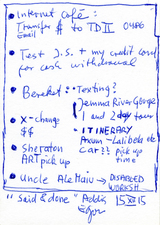 Internet café:
Transfer $ to TD II
Email
Test J.S. + my credit card
for cash withdrawal
Bereket: · Texting?
Jemma River Gorge
1 and 2 day tour
X-change
$$
· ITINERARY
Axum - Lalibela etc
car?? pick up
time
Sheraton
ART pick up
Uncle Ale Maiu → DISABLED
WORKSH
"Said & done" Addis 15 XII 15